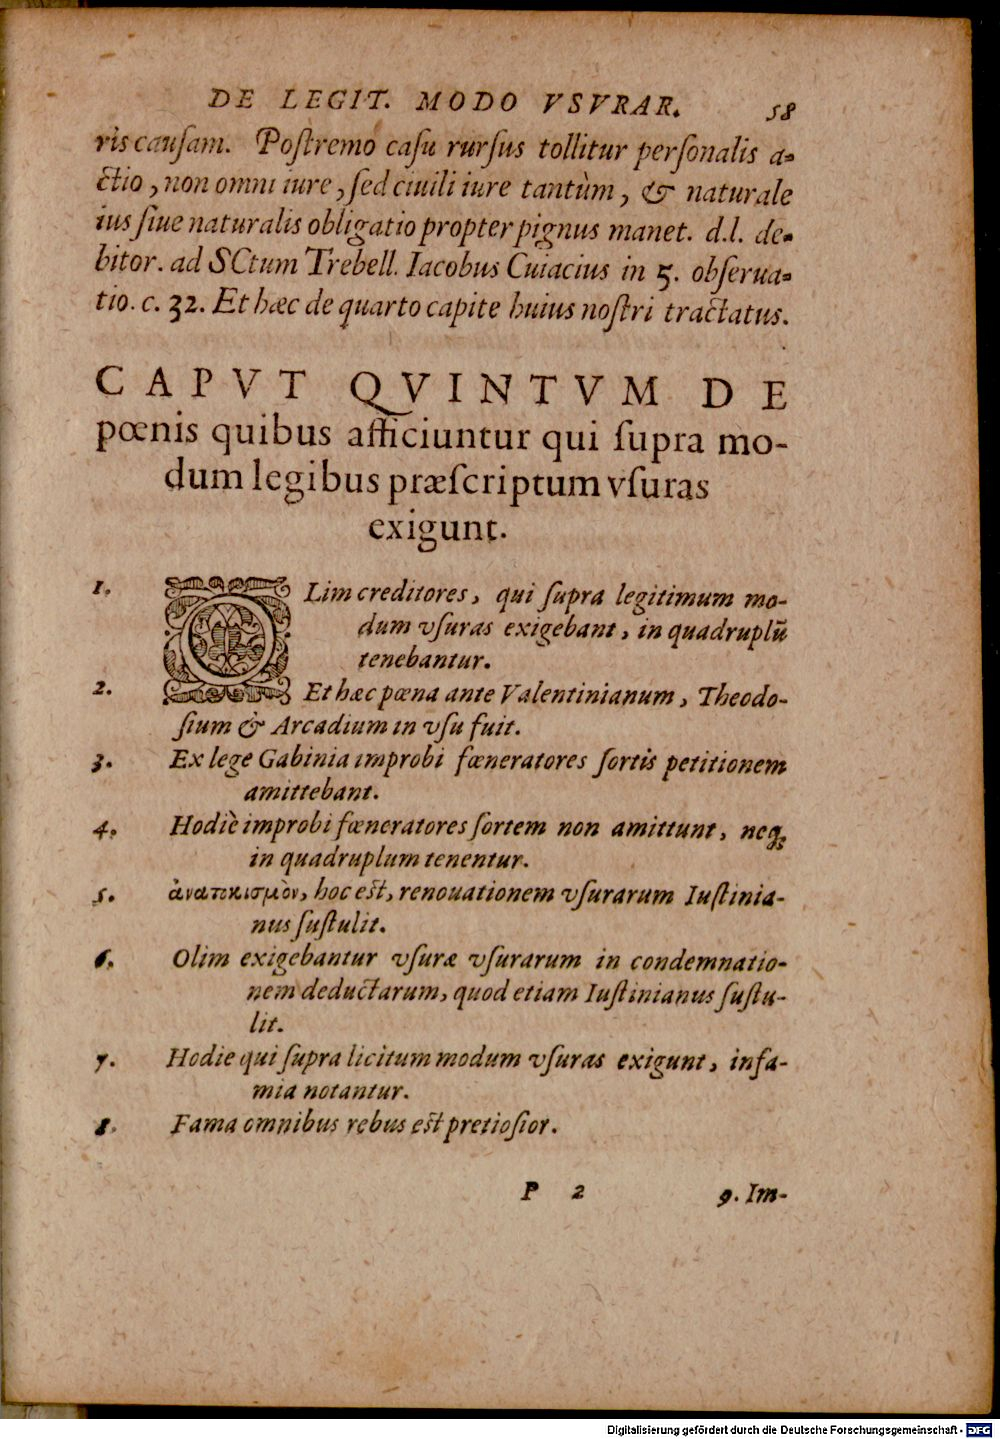 DE LEGIT. MODO VSVRAR. 58
ris causam. Postremo casu rursus tollitur personalis a-
ctio, non omni iure, sed ciuili iure tantùm, & naturale
ius siue naturalis obligatio propter pignus manet. d.l. de-
bitor. ad SCtum Trebell. Iacobus Cuiacius in 5. obserua-
tio. c. 32. Et hæc de quarto capite huius nostri tractatus.
CAPVT QVINTVM DE
pœnis quibus afficiuntur qui supra mo-
dum legibus præscriptum vsuras
exigunt.
1. OLim creditores, qui supra legitimum mo-
dum vsuras exigebant, in quadruplũ
tenebantur.
2. Et hæc pœna ante Valentinianum, Theodo-
sium & Arcadium in vsu fuit.
3. Ex lege Gabinia improbi fœneratores sortis petitionem
amittebant.
4. Hodiè improbi fœneratores sortem non amittunt, neq;
in quadruplum tenentur.
5. ἀνατοκισμὸν, hoc est, renouationem vsurarum Iustinia-
nus sustulit.
6. Olim exigebantur vsuræ vsurarum in condemnatio-
nem deductarum, quod etiam Iustinianus sustu-
lit.
7. Hodie qui supra licitum modum vsuras exigunt, infa-
mia notantur.
8. Fama omnibus rebus est pretiosior.
P 2 9. Im-
Digitalisierung gefördert durch die Deutsche Forschungsgemeinschaft - DFG